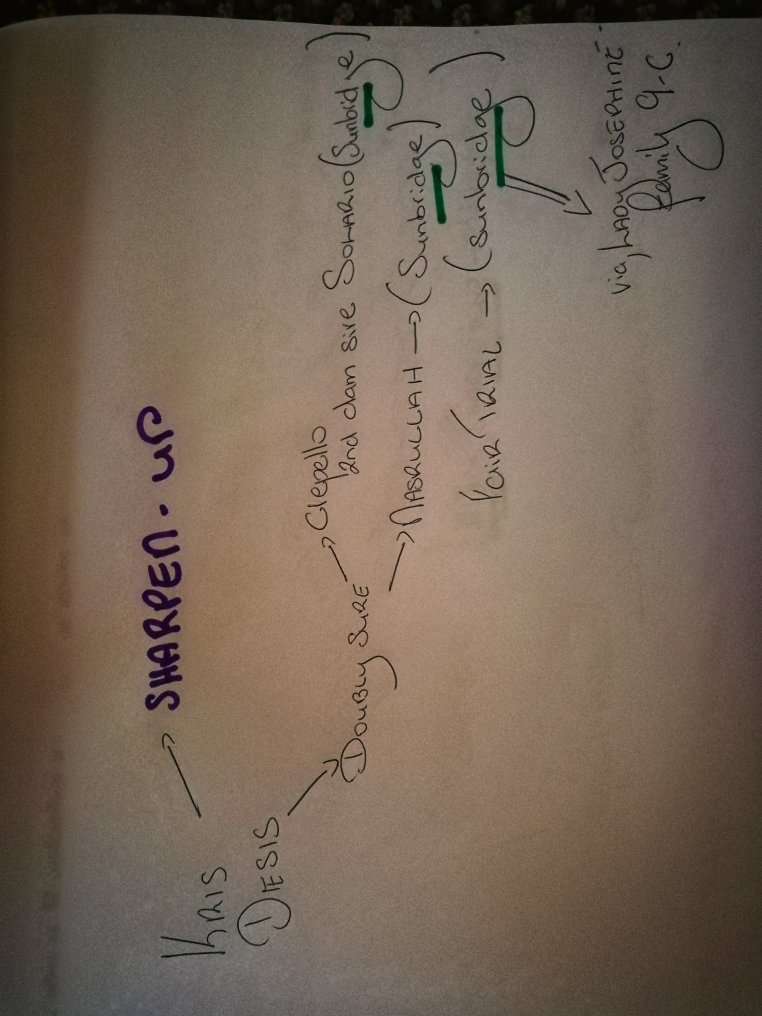 KRIS → SHARPEN-UP
DIESIS
Crepello
2nd dam sire SOLARIO (Sunbridge)
DOUBLY SURE
NASRULLAH → (Sunbridge)
FAIR TRIAL → (Sunbridge)
via, LADY JOSEPHINE -
family 9-C.